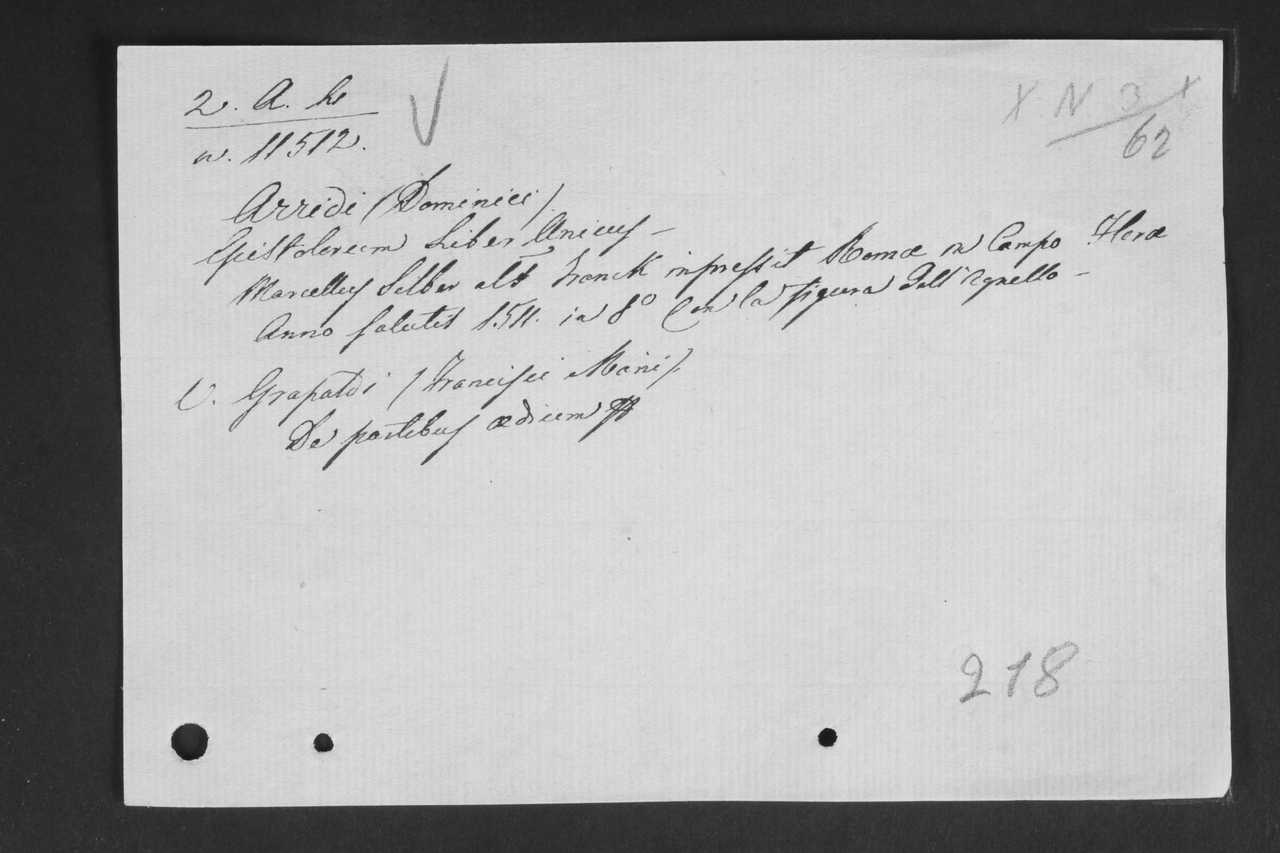 2. A. h
X N 3 X
62
n. 11512.
Arridi (Dominici)
Epistolarum Liber Unicus -
Marcellus Silber als Franck inpressit Romæ in Campo Floræ
Anno salutis 1511. in 8º Con la figura dell'Agnello -
V. Grapaldi (Francisci Marii).
De partibus ædium
218